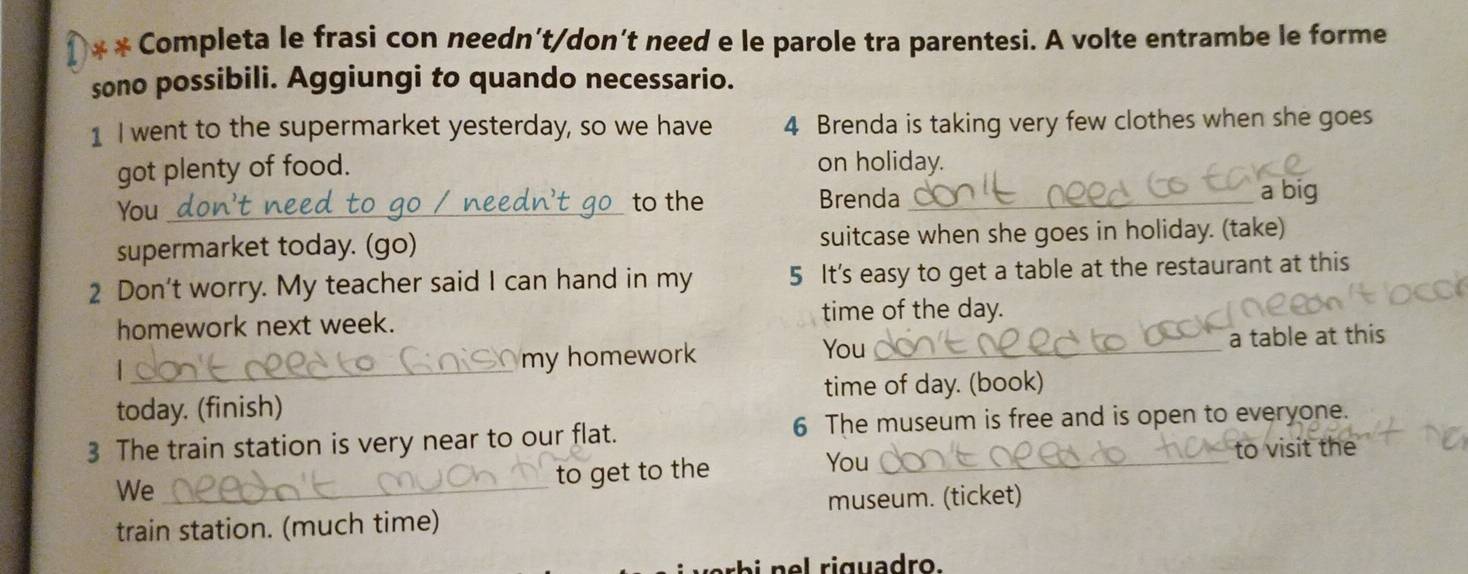 1 ** Completa le frasi con needn't/don't need e le parole tra parentesi. A volte entrambe le forme
sono possibili. Aggiungi to quando necessario.
1 I went to the supermarket yesterday, so we have
got plenty of food.
You don't need to go / needn't go to the
supermarket today. (go)
2 Don't worry. My teacher said I can hand in my
homework next week.
I don't need to finish my homework
today. (finish)
3 The train station is very near to our flat.
We needn't much time to get to the
train station. (much time)
4 Brenda is taking very few clothes when she goes
on holiday.
Brenda don't need to take a big
suitcase when she goes in holiday. (take)
5 It's easy to get a table at the restaurant at this
time of the day.
You don't need to book/needn't book a table at this
time of day. (book)
6 The museum is free and is open to everyone.
You don't need to ticket/needn't to visit the
museum. (ticket)
verbi nel riquadro.